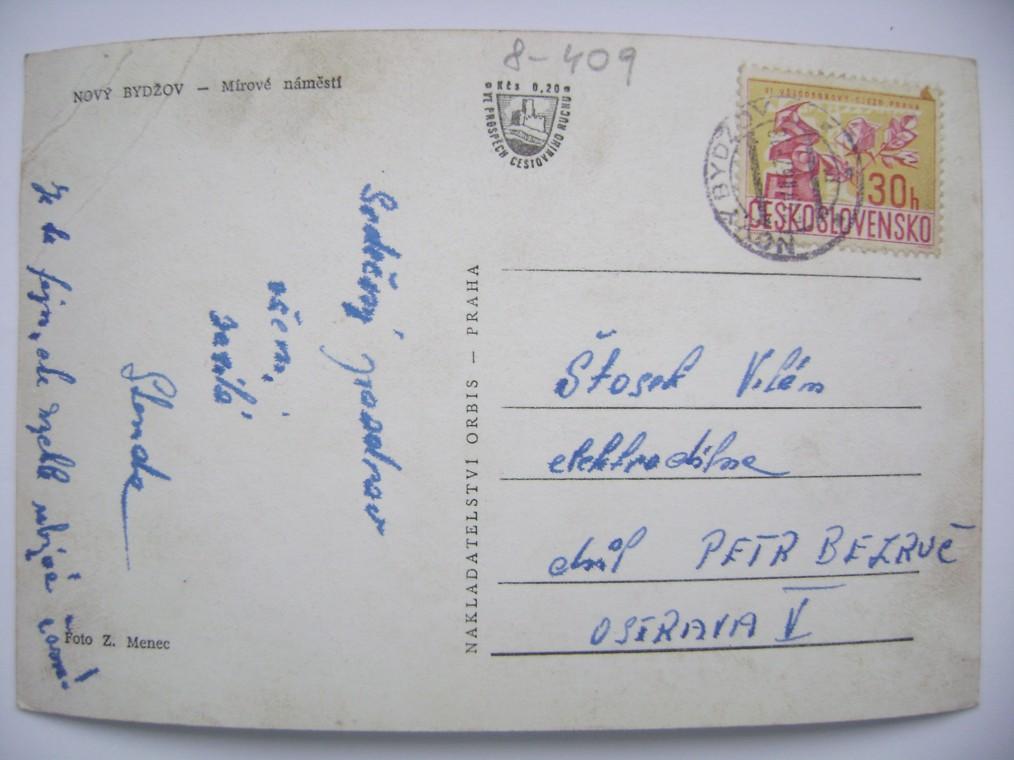 8-409
NOVÝ BYDŽOV — Mírové náměstí
Kčs 0,20
VE PROSPĚCH CESTOVNÍHO RUCHU
VI. VŠEODBOROVÝ SJEZD PRAHA
30h
ČESKOSLOVENSKO
NOVÝ BYDŽOV
Srdečný pozdrav
všem,
zasílá
Standa
Je to fajn, ale
NAKLADATELSTVÍ ORBIS — PRAHA
Štosek Vilém
elektrodílna
důl PETR BEZRUČ
OSTRAVA V
Foto Z. Menec